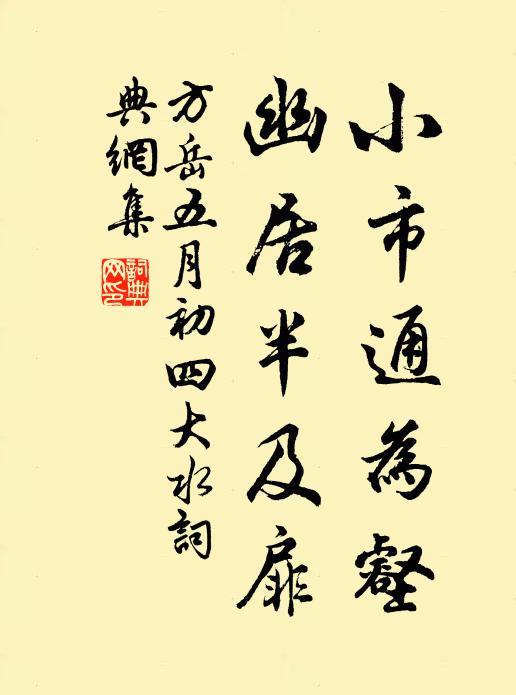 小市通為壑
幽居半及扉
方岳五月初四大水詞
典網集
詞典網印